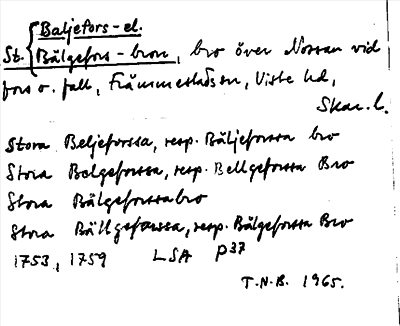 Baljefors- el.
St. Bälgefors-bron, bro över Nossan vid
fors o. fall, Främmestads sn, Viste hd,
Skar. l.
Stora Beljeforssa, resp. Bäljeforssa bro
Stora Bolgeforssa, resp. Bellgeforssa Bro
Stora Bälgeforssabro
Stora Bällgeforssa, resp. Bälgeforssa Bro
1753, 1759 LSA P37
T.N.B. 1965.